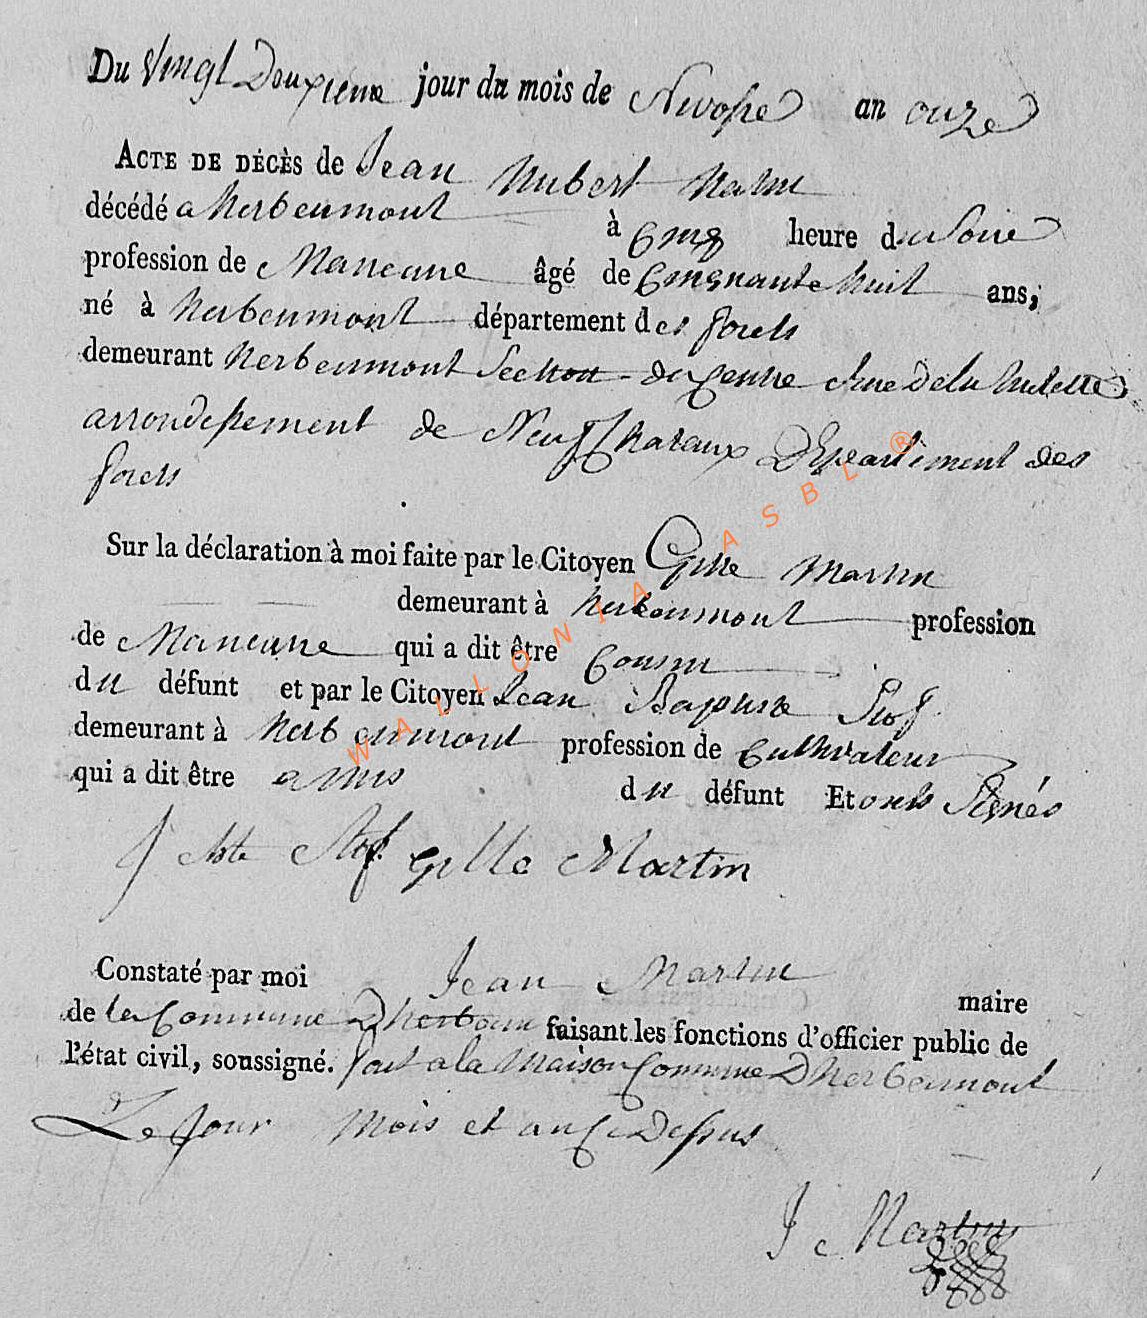 Du Vingt Deuxieme jour du mois de Nivose an onze
ACTE DE DÉCÈS de Jean Hubert
décédé a herbeumont à Cinq heure du Soire
profession de Maneuvre âgé de Cinquante huit ans,
né à herbeumont département des forets
demeurant herbeumont Section du Centre rue De la
arrondissement de Neufchateaux Departement des
forets
Sur la déclaration à moi faite par le Citoyen Gille Martin
demeurant à herbeumont profession
de Maneuvre qui a dit être Cousin
du défunt et par le Citoyen Jean Baptiste Stof
demeurant à herbeumont profession de Cultivateur
qui a dit être amis du défunt Et onts Signés
J Bte Stof Gille Martin
Constaté par moi Jean Martin maire
de la Commune Dherbeum faisant les fonctions d'officier public de
l'état civil, soussigné. fait a la Maison Commune Dherbeumont
Le Jour Mois et an Ci Dessus
J Martin
WALLONIA ASBL ®